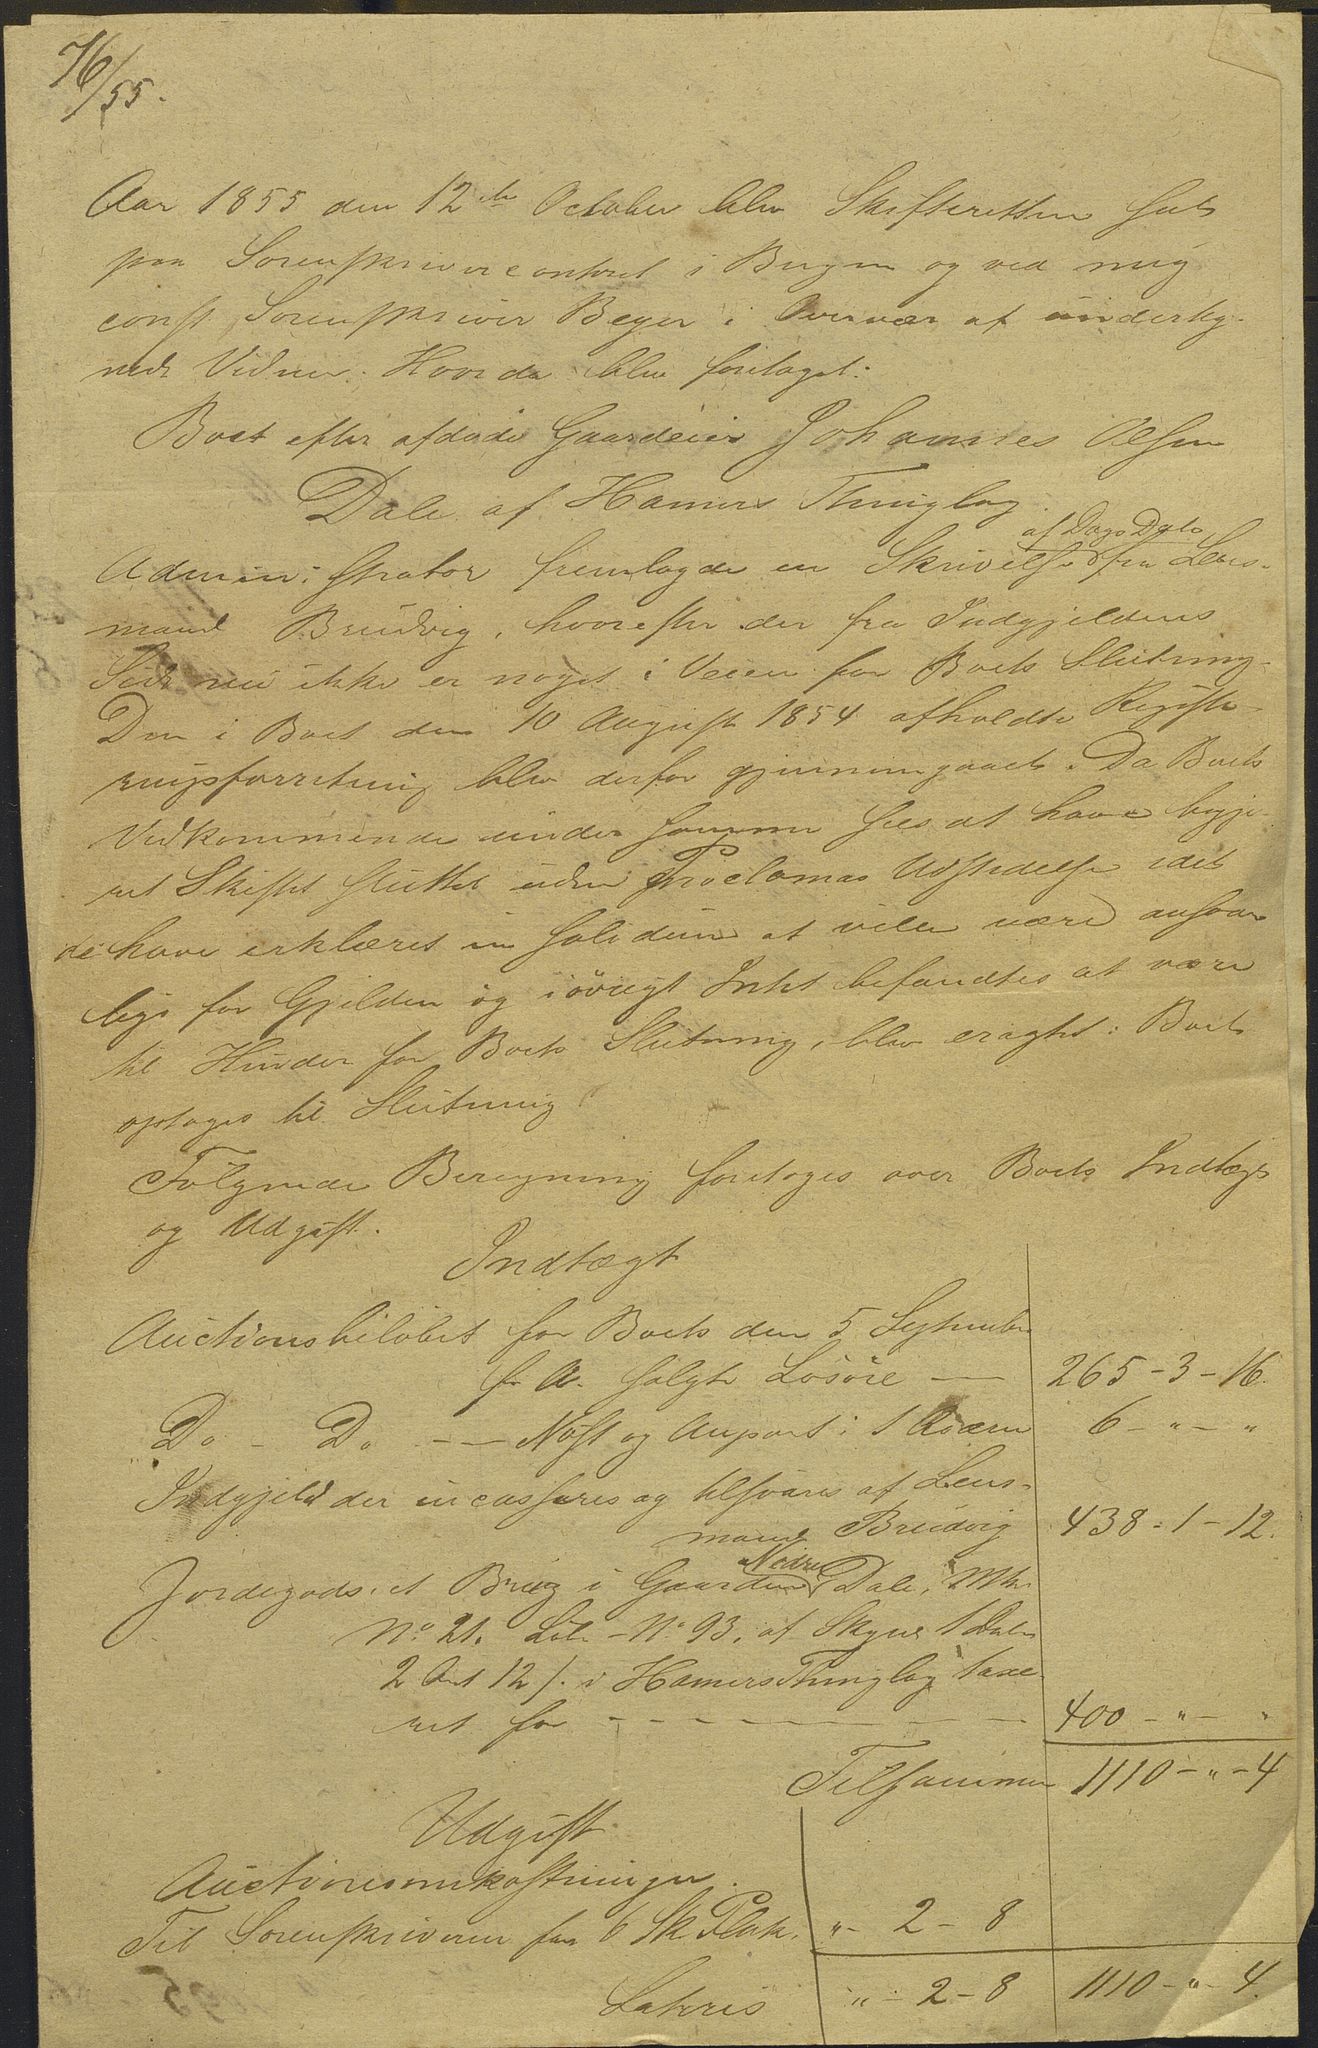 76/55.
Aar 1855 den 12te October blev Skifteretten sat
paa Sorenskrivercontoret i Bergen og ved mig
const. Sorenskriver Beyer i Overvær af underteg-
nede Vidner. Hvorda blev foretaget:
Boet efter afdøde Gaardeier Johannes Olsen
Dale af Hamers Thinglag
Administrator fremlagde en Skrivelse af Dags Dato fra Lens-
mand Brudvig, hvorefter der fra Indgjeldens
Side nu ikke er noget i Veien for Boets Slutning.
Den i Boet den 10 August 1854 afholdte Registe-
ringsforretning blev derfor gjennemgaaet. Da Boets
Vedkommende under samme sees at have begje-
ret Skiftet sluttet uden Proclamas Udstedelse idet
de have erklæret in solidum at ville være ansvar
lige for Gjelden og iøvrigt Intet befandtes at være
til Hinder for Boets Slutning, blev eragtet: Boet
optages til Slutning.
Følgende Beregning foretages over Boets Indtægt
og Udgift.
Indtægt
Auctionsbeløbet for Boets den 5 September
f. A. solgte Løsøre — 265 - 3 - 16.
Do - Do -- Nøst og Anpart i 1 Qværn 6 - " - "
Indgjeld der incasseres og tilsvares af Lens-
mand Brudvig 438 - 1 - 12.
Jordegods: et Brug i Gaarden Nedre Dale, Mtr.
No 21. Løb - No 93. af Skyld 1 Daler
2 Ort 12 s. i Hamers Thinglag taxe-
ret for - - - - - - - 400 - " - "
Tilsammen 1110 - " - 4
Udgift
Auctionsomkostninger.
Til Sorenskriveren for 6 Sk. Plak. " - 2 - 8
Lateris " - 2 - 8 1110 - " - 4.